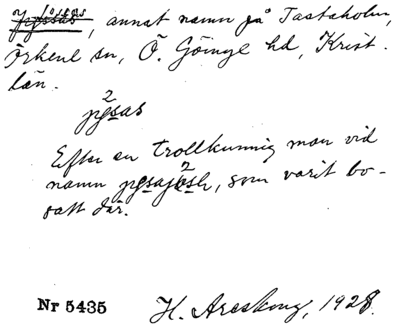 , annat namn på Tastaholm,
Örkene sn, Ö. Göinge hd, Krist.
län.
2
pesas
Efter en trollkunnig man vid
namn , som varit bo-
satt där.
Nr 5435 H. Areskoug, 1928.